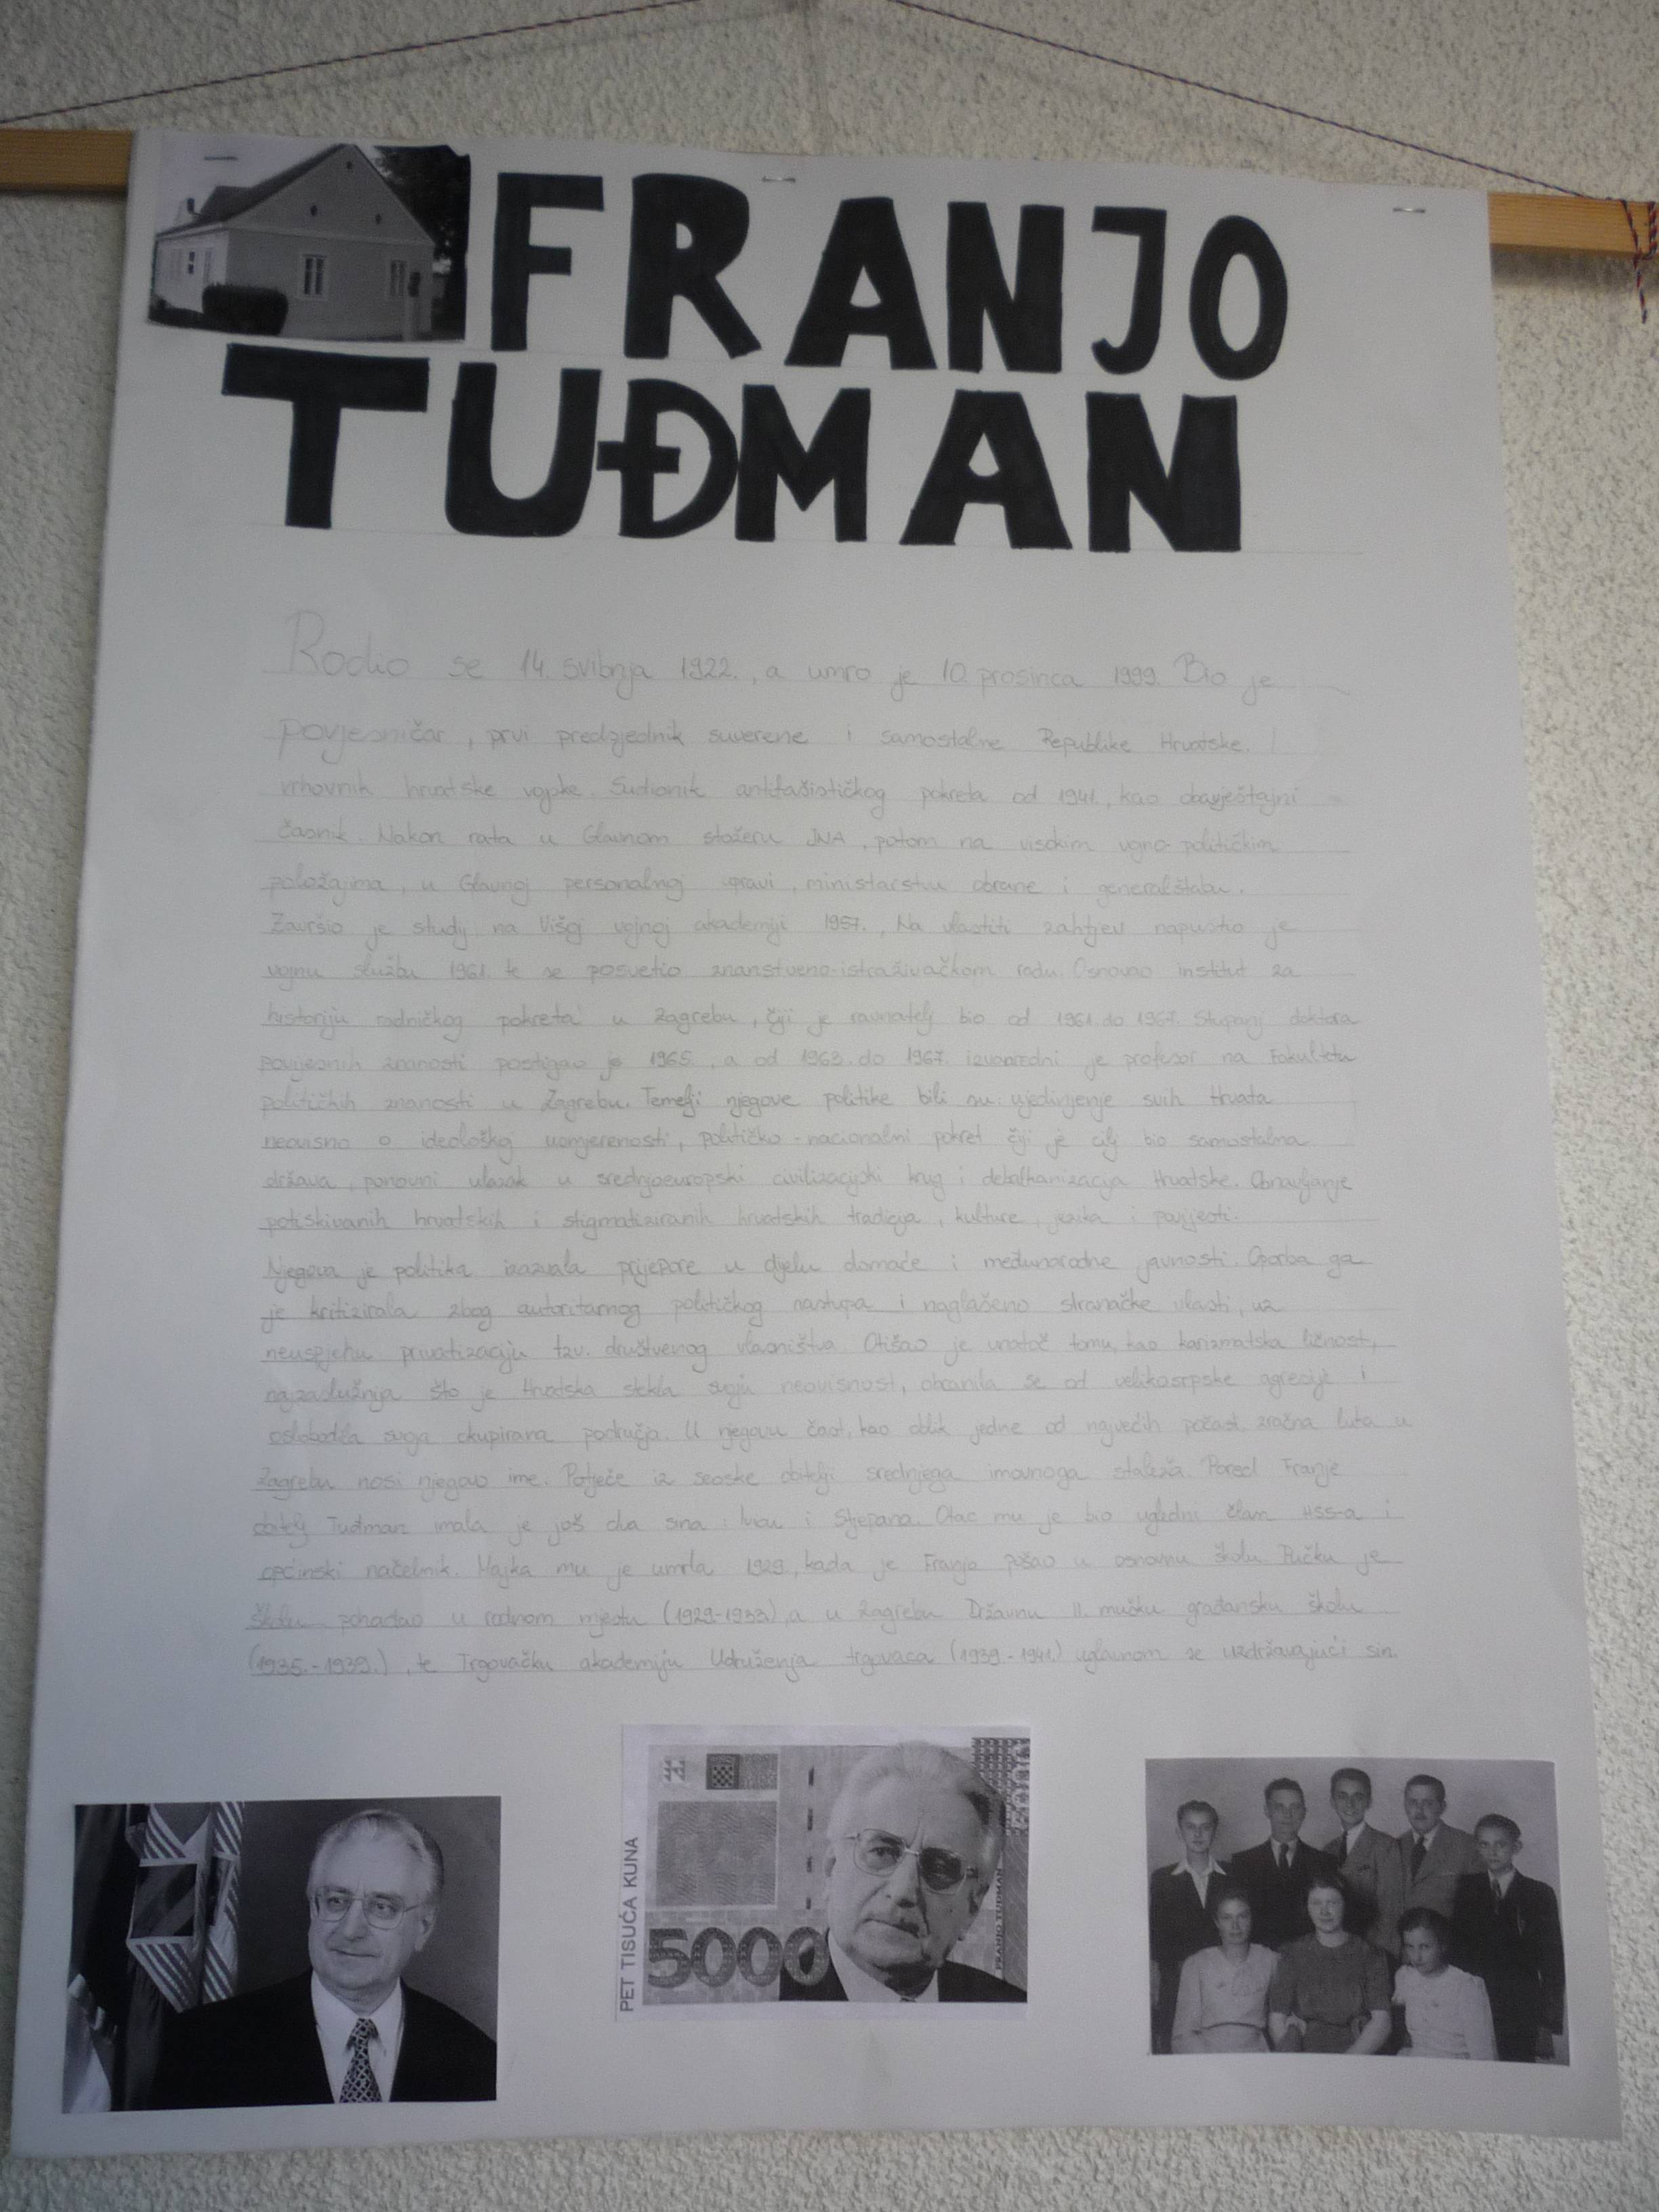 FRANJO
TUĐMAN
Rodio se 14. svibnja 1922., a umro je 10. prosinca 1999. Bio je
povjesničar, prvi predsjednik suverene i samostalne Republike Hrvatske. I
vrhovnik hrvatske vojske. Sudionik antifašističkog pokreta od 1941., kao obavještajni
časnik. Nakon rata u Glavnom stožeru JNA, potom na visokim vojno-političkim
položajima, u Glavnoj personalnoj upravi, ministarstvu obrane i generalštabu.
Završio je studij na Višoj vojnoj akademiji 1957., Na vlastiti zahtjev napustio je
vojnu službu 1961. te se posvetio znanstveno-istraživačkom radu. Osnovao institut za
historiju radničkog pokreta u Zagrebu, čiji je ravnatelj bio od 1961. do 1967. Stupanj doktora
povijesnih znanosti postigao je 1965., a od 1963. do 1967. izvanredni je profesor na Fakultetu
političkih znanosti u Zagrebu. Temelji njegove politike bili su: ujedinjenje svih Hrvata
neovisno o ideološkoj usmjerenosti, političko-nacionalni pokret čiji je cilj bio samostalna
država, ponovni ulazak u srednjoeuropski civilizacijski krug i debalkanizacija Hrvatske. Obnavljanje
potiskivanih hrvatskih i stigmatiziranih hrvatskih tradicija, kulture, jezika i povijesti.
Njegova je politika izazvala prijepore u dijelu domaće i međunarodne javnosti. Oporba ga
je kritizirala zbog autoritarnog političkog nastupa i naglašeno stranačke vlasti, uz
neuspjehu privatizaciju tzv. društvenog vlasništva. Otišao je unatoč tomu, kao karizmatska ličnost,
najzaslužnija što je Hrvatska stekla svoju neovisnost, obranila se od velikosrpske agresije i
oslobodila svoja okupirana područja. U njegovu čast, kao oblik jedne od najvećih počast zračna luka u
Zagrebu nosi njegovo ime. Potječe iz seoske obitelji srednjega imovnoga staleža. Pored Franje
obitelj Tuđman imala je još dva sina: Ivicu i Stjepana. Otac mu je bio ugledni član HSS-a i
općinski načelnik. Majka mu je umrla 1929., kada je Franjo pošao u osnovnu školu. Pučku je
školu pohađao u rodnom mjestu (1929-1933), a u Zagrebu Državnu II. mušku građansku školu
(1935.-1939.), te Trgovačku akademiju Udruženja trgovaca (1939.-1941.) uglavnom se uzdržavajući sin.
PET TISUĆA KUNA
5000
FRANJO TUĐMAN